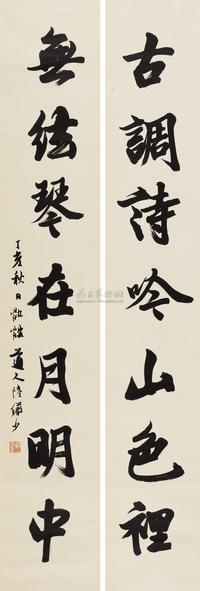 古調詩吟山色裡
無絃琴在月明中
丁亥秋日 道人陸儼少